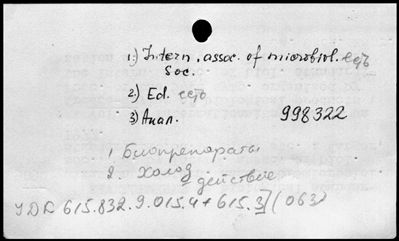 1.) Intern. assoc. of microbiol. есть
Soc.
2.) Ed. есть
3) Анал.
998322
1 Биопрепараты
2. Холод
действие
УДК 615.832.9.015.4+615.3](063)